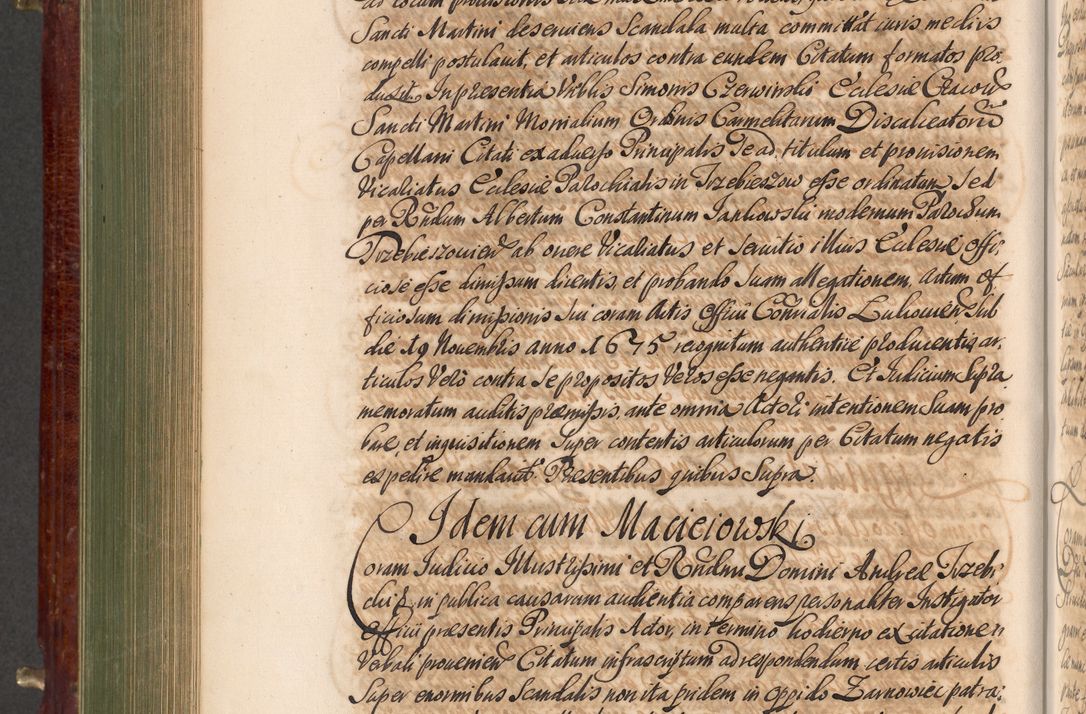 Sancti Martini deserviens Scandala multa committat iuris mediis
compelli postulavit, et articulos contra eundem Citatum formatos pro-
duxit. In præsentia Vblis Simonis Czerwinski Ecclesiæ Cracovien
Sancti Martini Monialium Ordinis Carmelitarum Discalceatorũ
Capellani Citati ex adverso Principalis se ad titulum et provisionem
Vicariatus Ecclesiæ Parochialis in Trzebieszow esse ordinatum, Sed
per Rñdum Albertum Constantinum Jankowski modernum Parochum
Trzebieszovien ab onere Vicariatus et servitio illius Ecclesiæ offi-
ciose esse dimissum dicentis, et probando suam allegationem, actum of
ficiosum dimissionis sui coram Actis Officii Consialis Lukovien Sub
die 19 Novembris anno 1675 recognitum authentice producentis ar-
ticulos Vero contra se propositos Veros esse negantis. Et Judicium Supra
memoratum auditis præmissis, ante omnia Actori intentionem Suam pro
bare, et inquisitionem super contentis articulorum per Citatum negatis
expedire mandavit. Præsentibus quibus Supra.
Idem cum Macieiowski
Coram Judicio Illustrissimi et Rñdmi Domini Andreæ Trzebi-
cki &, in publica causarum audientia comparens personaliter Instigator
Officii præsentis Principalis Actor, in termino hodierno ex citatione
Verbali provenien Citatum infrascriptum ad respondendum certis articulis
Super enormibus Scandalis non ita pridem in oppido Zarnowiec patra-